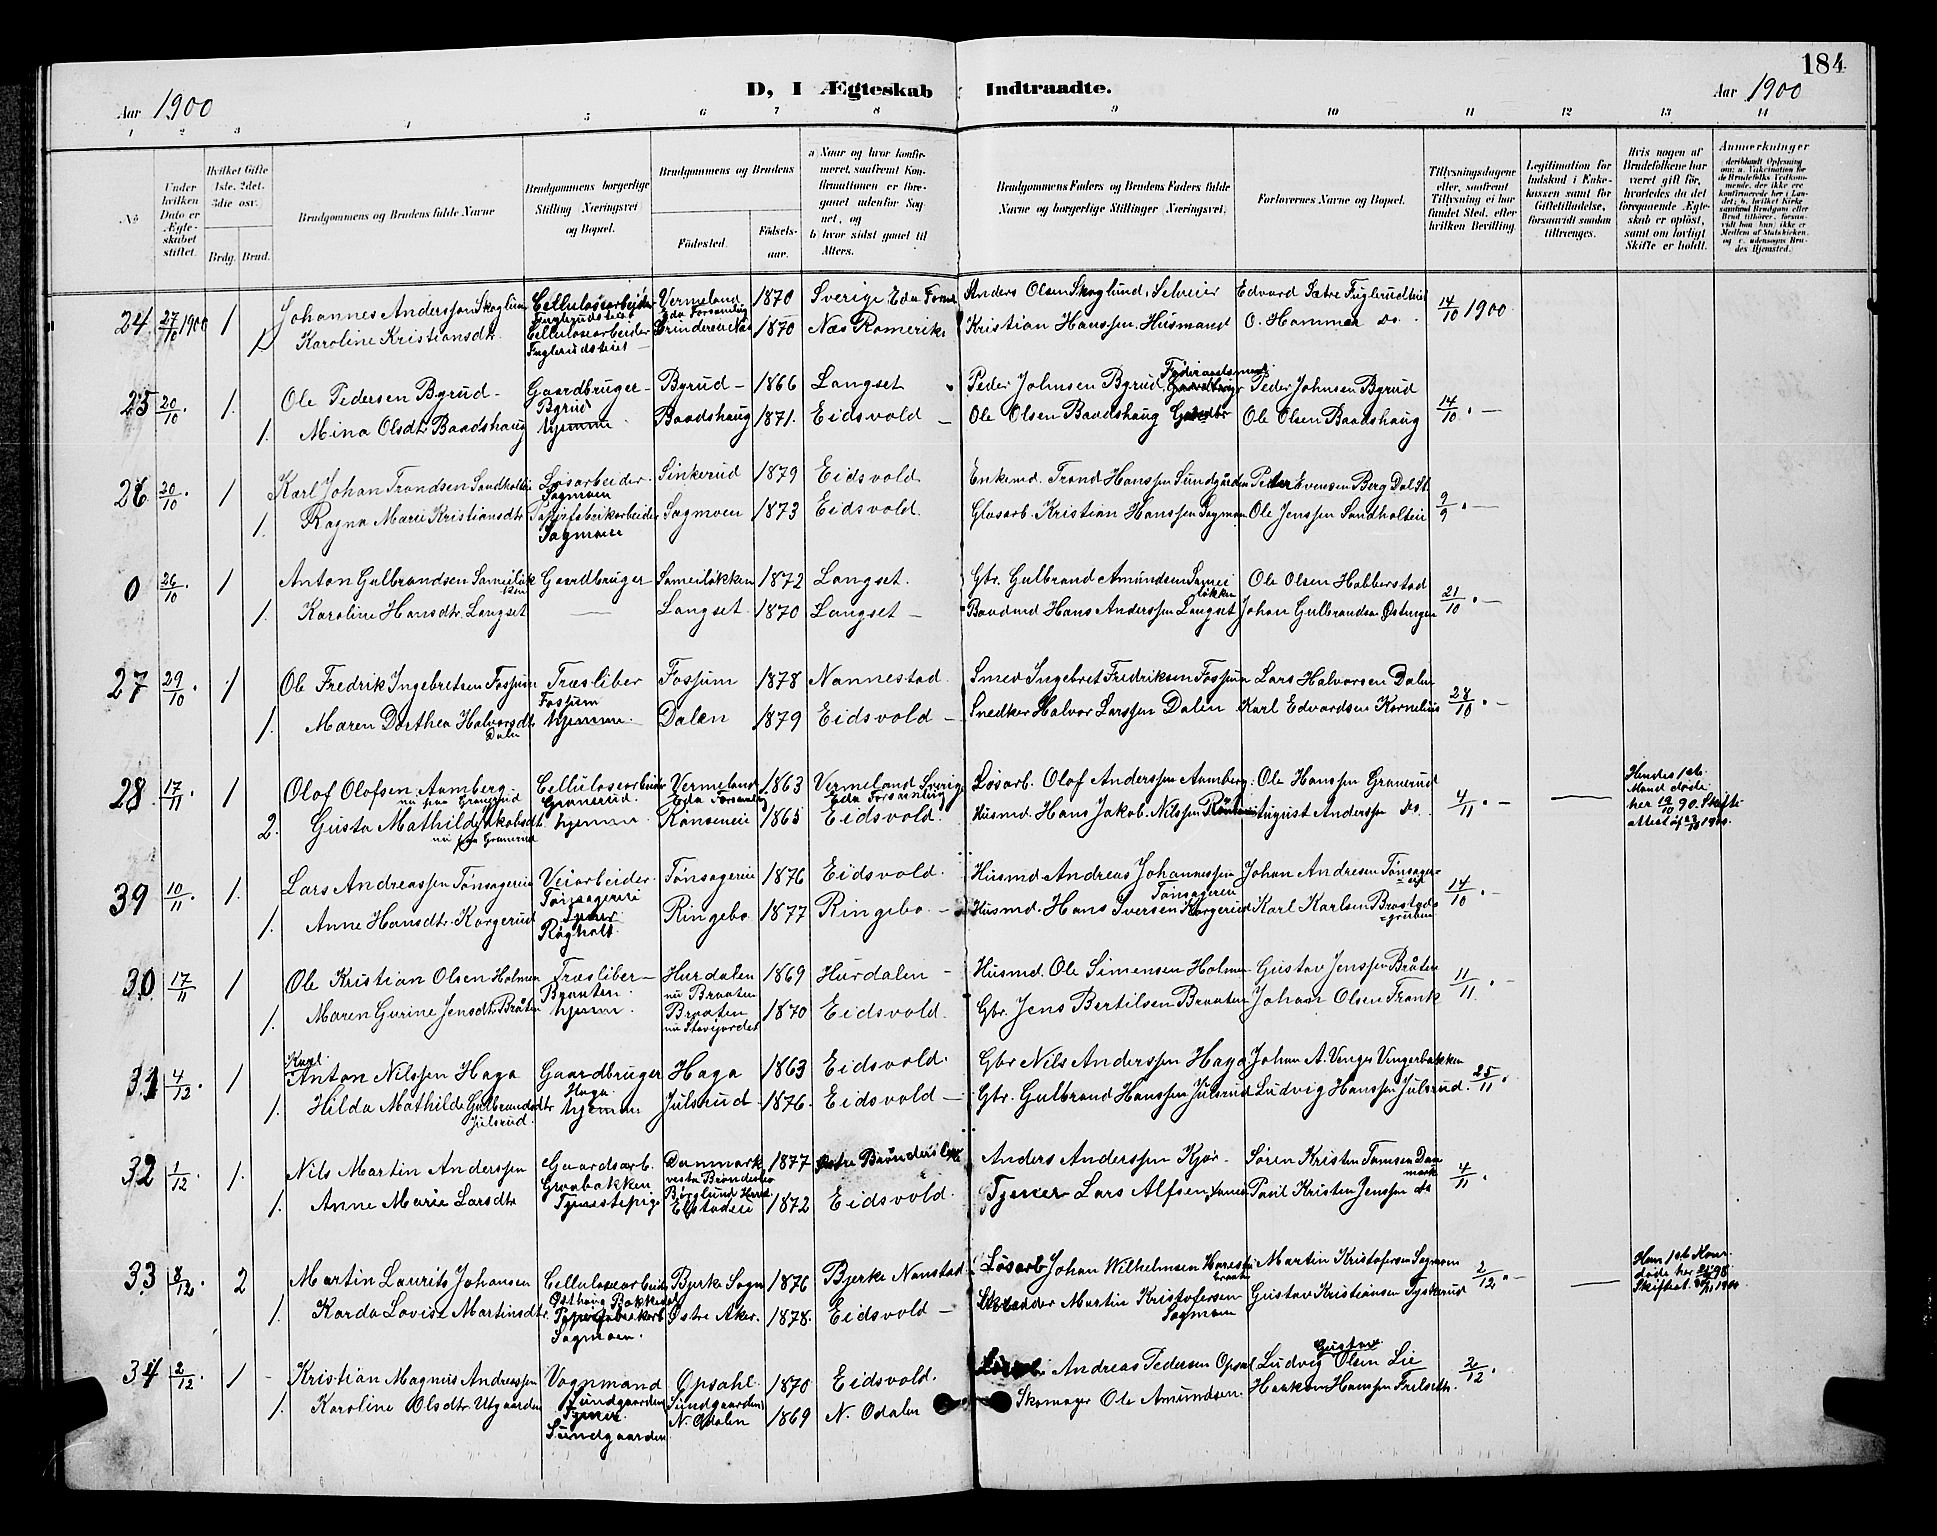 184
D, I Ægteskab Indtraadte.
Aar 1900
Aar 1900
1 2 3 4 5 6 7 8 9 10 11 12 13 14
No
Under hvilken Dato er Ægteskabet stiftet.
Hvilket Gifte 1ste. 2det. 3die osv.
Brdg. Brud.
Brudgommens og Brudens fulde Navne
Brudgommens borgerlige Stilling Næringsvei og Bopæl.
Brudgommens og Brudens
Födested.
Födsels-aar.
a) Naar og hvor konfirmeret, saafremt Konfirmationen er foregaaet udenfor Sognet, og
b) hvor sidst gaaet til Alters.
Brudgommens Faders og Brudens Faders fulde Navne og borgerlige Stillinger Næringsvei.
Forlovernes Navne og Bopæl.
Tillysningsdagene eller, saafremt Tillysning ei har fundet Sted, efter hvilken Bevilling.
Legitimation for Indskud i Enkekassen samt for Giftetilladelse, forsaavidt saadan tiltrænges.
Hvis nogen af Brudefolkene har været gift för, hvorledes da det foregaaende Ægteskab er oplöst, samt om lovligt Skifte er holdt.
Anmerkninger
24. 27/10 1900 1 Johannes Anderssen Skoglund Cellulosearbeider Vermeland 1870 Sverige Eda Forsml Anders Olsen Skoglund, Selveier Edvard Sætre Fuglerudteiet 14/10 1900
Fuglerudsteiet Eda Forsamling
1 Karoline Kristiansdtr Cellulosearbeider 1870 Næs Romerike Kristian Hanssen. Husmand O. Hammer do.
Fuglerudsteiet
25 20/10 1. Ole Pedersen Byrud Gaardbruger Byrud 1866 Langset Peder Johnsen Byrud, Föderaadsmand Peder Johnsen Byrud 14/10
Byrud
1. Mina Olsdtr Baadshaug hjemme Baadshaug 1871. Eidsvold Ole Olsen Baadshaug Gaardbr Ole Olsen Baadshaug
26 20/10 1 Karl Johan Trondsen Sandholtei Lösarbeider Sinkerud 1879 Eidsvold Enkemd. Trond Hanssen Sundgården Peder Evensen Berg Dal St 9/9
Sagmoen
1. Ragna Marie Kristiansdtr Papirfabrikarbeider Sagmoen 1873 Eidsvold. Glasarb. Kristian Hanssen Sagmoen Ole Jenssen Sandholtei
Sagmoen
0 26/10 1 Anton Gulbrandsen Sameilökken Gaardbruger Sameilökken 1872 Langset. Gbr. Gulbrand Amundsen Sameilökken Ole Olsen Habberstad 21/10
1. Karoline Hansdtr. Langset Langset 1870 Langset Baadmd Hans Anderssen Langset Johan Gulbrandsen Østengen
27 29/10 1 Ole Fredrik Ingebretsen Fossum Træsliber Fossum 1878 Nannestad. Smed Ingebret Fredriksen Fossum Lars Halvorsen Dalen 28/10
Fossum
1. Maren Dorthea Halvorsdtr Dalen hjemme Dalen 1879 Eidsvold Snedker Halvor Larssen Dalen Karl Edvardsen Kornelius
28 17/11 1 Olof Olofsen Aamberg Cellulosearbeider Vermeland 1863 Vermeland Sverige Lösarb. Olof Anderssen Aamberg. Ole Hanssen Granerud 4/11 Hendes 1ste Mand döde
nu paa Granerud Granerud. Eda Forsamling Eda Forsamling
2. Gusta Mathilde Jakobsdtr hjemme 1865 Eidsvold. Husmd. Hans Jakob Nilssen August Anderssen do.
nu paa Granerud
39 10/11 1. Lars Andreassen Tönsagereie Veiarbeider Tönsagereie 1876 Eidsvold. Husmd Andreas Johannessen Johan Andresen Tönsagereie 14/10
Tönsagereie Tönsagereie
1. Anne Hansdtr. Korgerud Ringebo 1877 Ringebo Husmd. Hans Iversen Korgerud Karl Karlsen
Råholt.
30 17/11 1 Ole Kristian Olsen Holmen Træsliber Hurdalen 1869 Hurdalen Husmd. Ole Simensen Holmen Gustav Jenssen Bråten 11/11
Braaten. nu Braaten
1. Maren Gurine Jensdtr Bråten hjemme. Braaten 1870 Eidsvold. Gbr. Jens Bertilsen Braaten Johan Olsen
31 4/12 1 Karl Anton Nilssen Haga Gaardbruger Haga 1863 Eidsvold. Gbr Nils Anderssen Haga Johan A. Venger Vengerbakken 25/11
Haga
1. Hilda Mathilde Gulbrandsdtr Julsrud. hjemme Julsrud 1876. Eidsvold Gbr. Gulbrand Hanssen Julsrud Ludvig Hanssen Julsrud.
32 1/12 1. Nils Martin Anderssen Gaardsarb. Danmark 1877 Anders Anderssen Kjær Sören Kristen Danmark 4/11
Graabakken
1. Anne Marie Larsdtr Tjenestepige Elstadeie 1872 Eidsvold. Tjener Lars Alfsen Paul Kristen Jenssen do
33 8/12 2 Martin Laurits Johansen Cellulosearbeider Bjerke Sogn 1876 Bjerke Nanstad Lösarb Johan Wilhelmsen Martin Kristofersen Sagmoen 2/12
1. Karda Lovise Martinsdtr. Papirfabrikarb. Østre Aker. 1878. Eidsvold Skrædder Martin Kristofersen Sagmoen Gustav Kristiansen Tyskerud
Sagmoen.
34 2/12 1 Kristian Magnus Andreassen Vognmand Opsahl. 1870 Eidsvold. Andreas Pedersen Opsal Ludvig Gustav Olsen Lie 2/12
Sundgaarden Sundgaarden
1. Karoline Olsdtr Utgaarden Tjener N. Odalen 1869 N. Odalen Skomager Ole Amundsen. Haakon Hanssen
Sundgaarden.